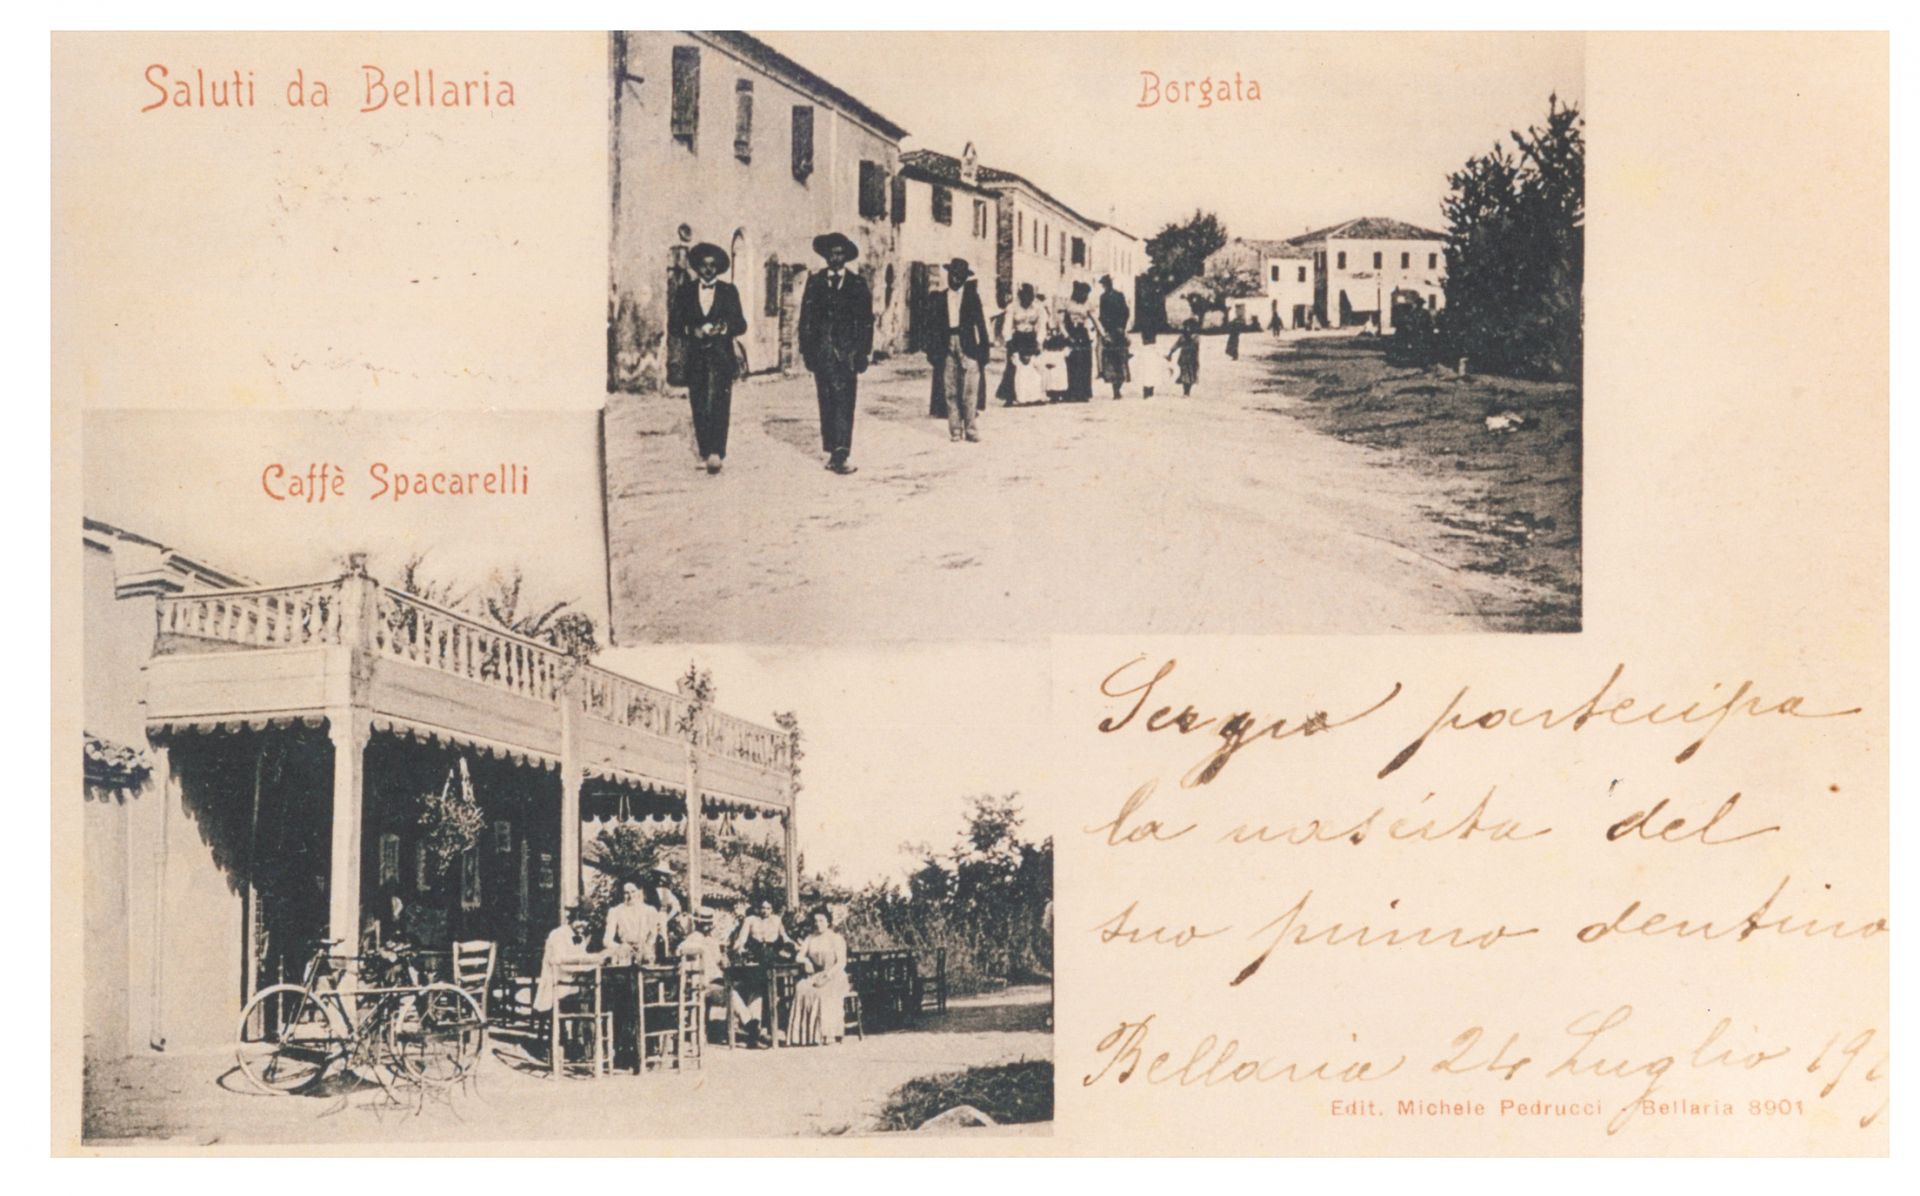 Saluti da Bellaria
Borgata
Caffè Spacarelli
Sergio partecipa
la nascita del
suo primo dentino
Bellaria 24 Luglio 19
Edit. Michele Pedrucci - Bellaria 8901